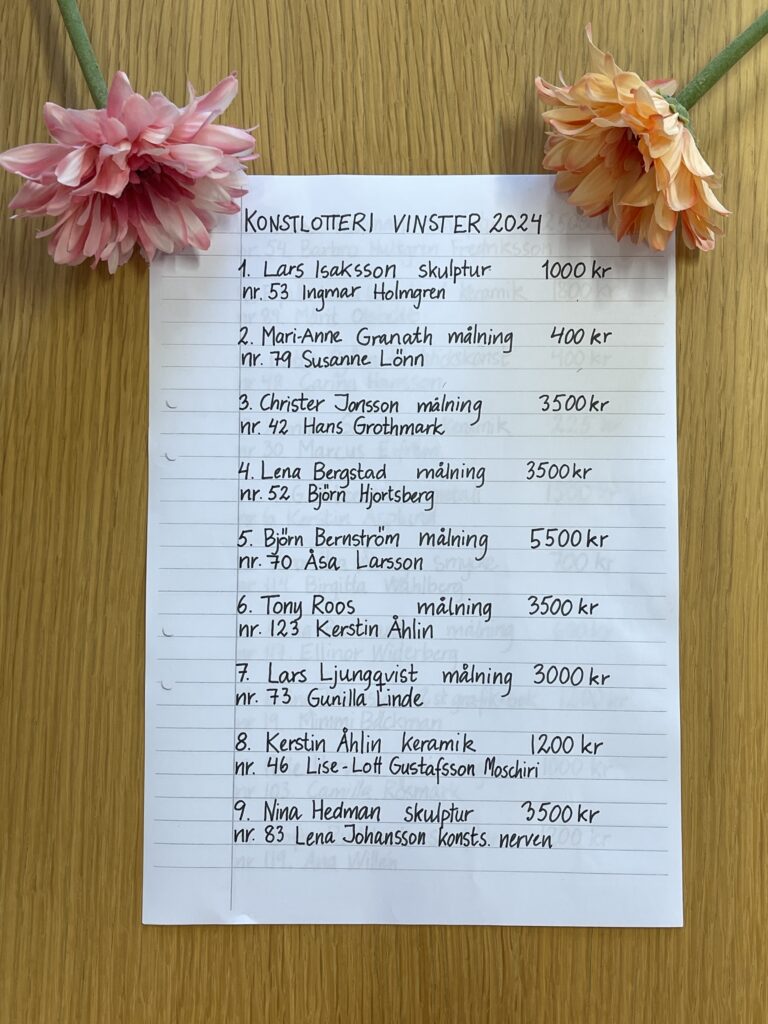 KONSTLOTTERI VINSTER 2024
1. Lars Isaksson skulptur 1000 kr
nr. 53 Ingmar Holmgren
2. Mari-Anne Granath målning 400 kr
nr. 79 Susanne Lönn
3. Christer Jonsson målning 3500 kr
nr. 42 Hans Grothmark
4. Lena Bergstad målning 3500 kr
nr. 52 Björn Hjortsberg
5. Björn Bernström målning 5500 kr
nr. 70 Åsa Larsson
6. Tony Roos målning 3500 kr
nr. 123 Kerstin Åhlin
7. Lars Ljungqvist målning 3000 kr
nr. 73 Gunilla Linde
8. Kerstin Åhlin keramik 1200 kr
nr. 46 Lise-Lott Gustafsson Moschiri
9. Nina Hedman skulptur 3500 kr
nr. 83 Lena Johansson konsts. nerven